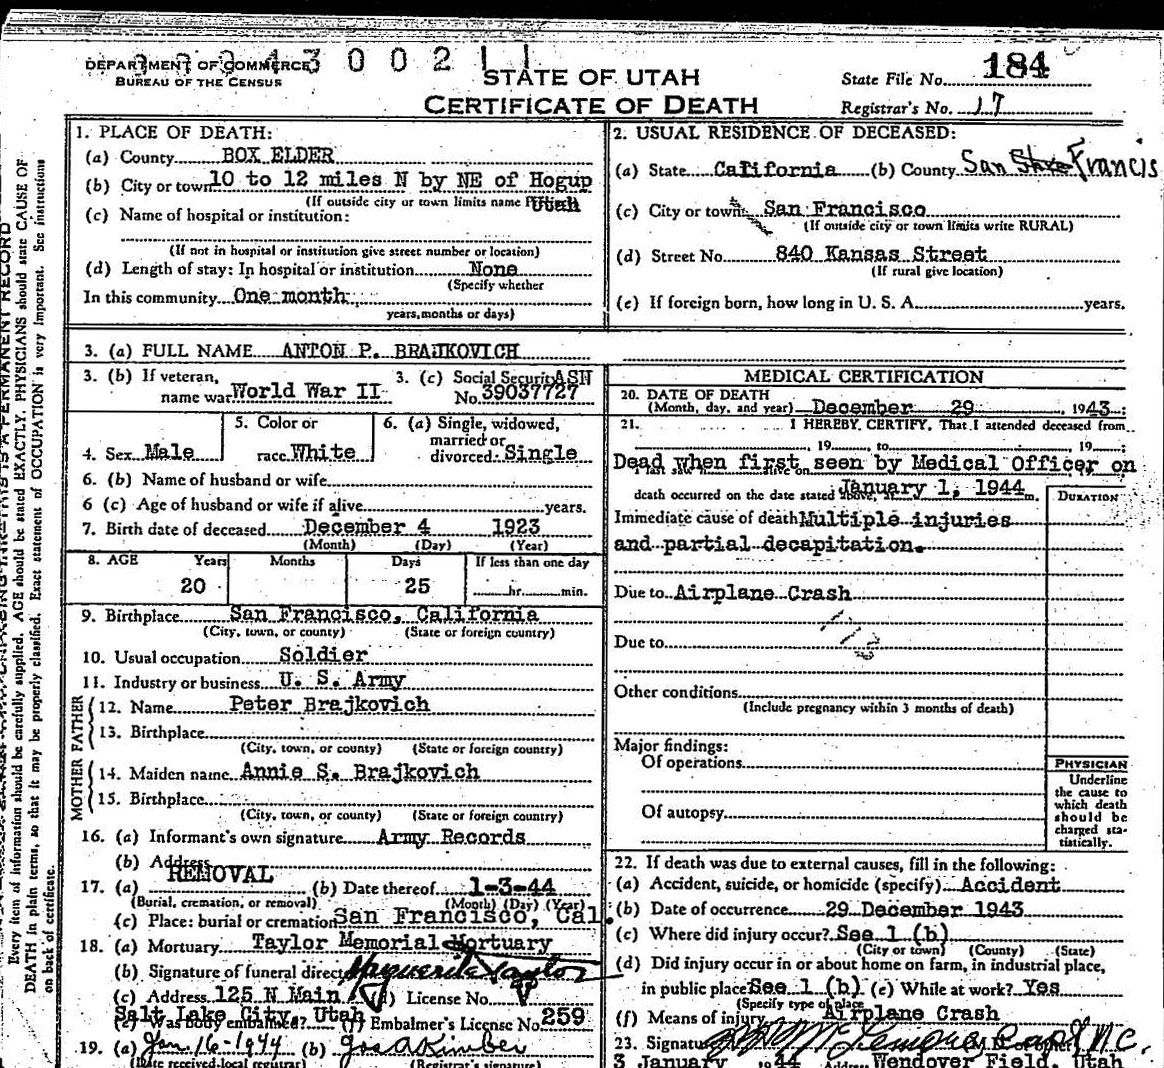 3 0 0 2 1 1
DEPARTMENT OF COMMERCE
BUREAU OF THE CENSUS
STATE OF UTAH
CERTIFICATE OF DEATH
State File No. 184
Registrar's No. 17
1. PLACE OF DEATH:
(a) County BOX ELDER
(b) City or town 10 to 12 miles N by NE of Hogup
(If outside city or town limits name Utah
(c) Name of hospital or institution:
(If not in hospital or institution give street number or location)
(d) Length of stay: In hospital or institution None
(Specify whether
In this community One month
years, months or days)
2. USUAL RESIDENCE OF DECEASED:
(a) State California (b) County San Francis
(c) City or town San Francisco
(If outside city or town limits write RURAL)
(d) Street No. 840 Kansas Street
(If rural give location)
(e) If foreign born, how long in U. S. A. years.
3. (a) FULL NAME ANTON P. BRAJKOVICH
3. (b) If veteran, name war World War II
3. (c) Social Security ASN No. 39037727
4. Sex Male
5. Color or race White
6. (a) Single, widowed, married or divorced: Single
6. (b) Name of husband or wife
6 (c) Age of husband or wife if alive years.
7. Birth date of deceased December 4 1923
(Month) (Day) (Year)
8. AGE Years Months Days If less than one day
20 25 hr. min.
9. Birthplace San Francisco, California
(City, town, or county) (State or foreign country)
10. Usual occupation Soldier
11. Industry or business U. S. Army
FATHER
12. Name Peter Brajkovich
13. Birthplace
(City, town, or county) (State or foreign country)
MOTHER
14. Maiden name Annie S. Brajkovich
15. Birthplace
(City, town, or county) (State or foreign country)
16. (a) Informant's own signature Army Records
(b) Address
17. (a) REMOVAL (b) Date thereof 1-3-44
(Burial, cremation, or removal) (Month) (Day) (Year)
(c) Place: burial or cremation San Francisco, Cal.
18. (a) Mortuary Taylor Memorial Mortuary
(b) Signature of funeral director Marguerite Taylor
(c) Address 125 N Main (d) License No.
Salt Lake City, Utah
(e) Was body embalmed? (f) Embalmer's License No. 259
19. (a) Jan. 16-1944 (b) Jos A Kimber
(Date received local registrar) (Registrar's signature)
MEDICAL CERTIFICATION
20. DATE OF DEATH
(Month, day, and year) December 29, 1943;
21. I HEREBY CERTIFY, That I attended deceased from
19 to 19 ;
Dead when first seen by Medical Officer on
January 1, 1944
death occurred on the date stated above, at m.
DURATION
Immediate cause of death Multiple injuries
and partial decapitation.
Due to Airplane Crash
Due to
Other conditions
(Include pregnancy within 3 months of death)
Major findings:
Of operations
Of autopsy
PHYSICIAN
Underline
the cause to
which death
should be
charged sta-
tistically.
22. If death was due to external causes, fill in the following:
(a) Accident, suicide, or homicide (specify) Accident
(b) Date of occurrence 29 December 1943
(c) Where did injury occur? See 1 (b)
(City or town) (County) (State)
(d) Did injury occur in or about home on farm, in industrial place,
in public place See 1 (b) (e) While at work? Yes
(Specify type of place
(f) Means of injury Airplane Crash
23. Signature Capt M.C.
3 January 1944 Address Wendover Field, Utah
Every item of information should be carefully supplied. AGE should be stated EXACTLY. PHYSICIANS should state CAUSE OF
DEATH in plain terms, so that it may be properly classified. Exact statement of OCCUPATION is very Important. See instructions
on back of certificate.